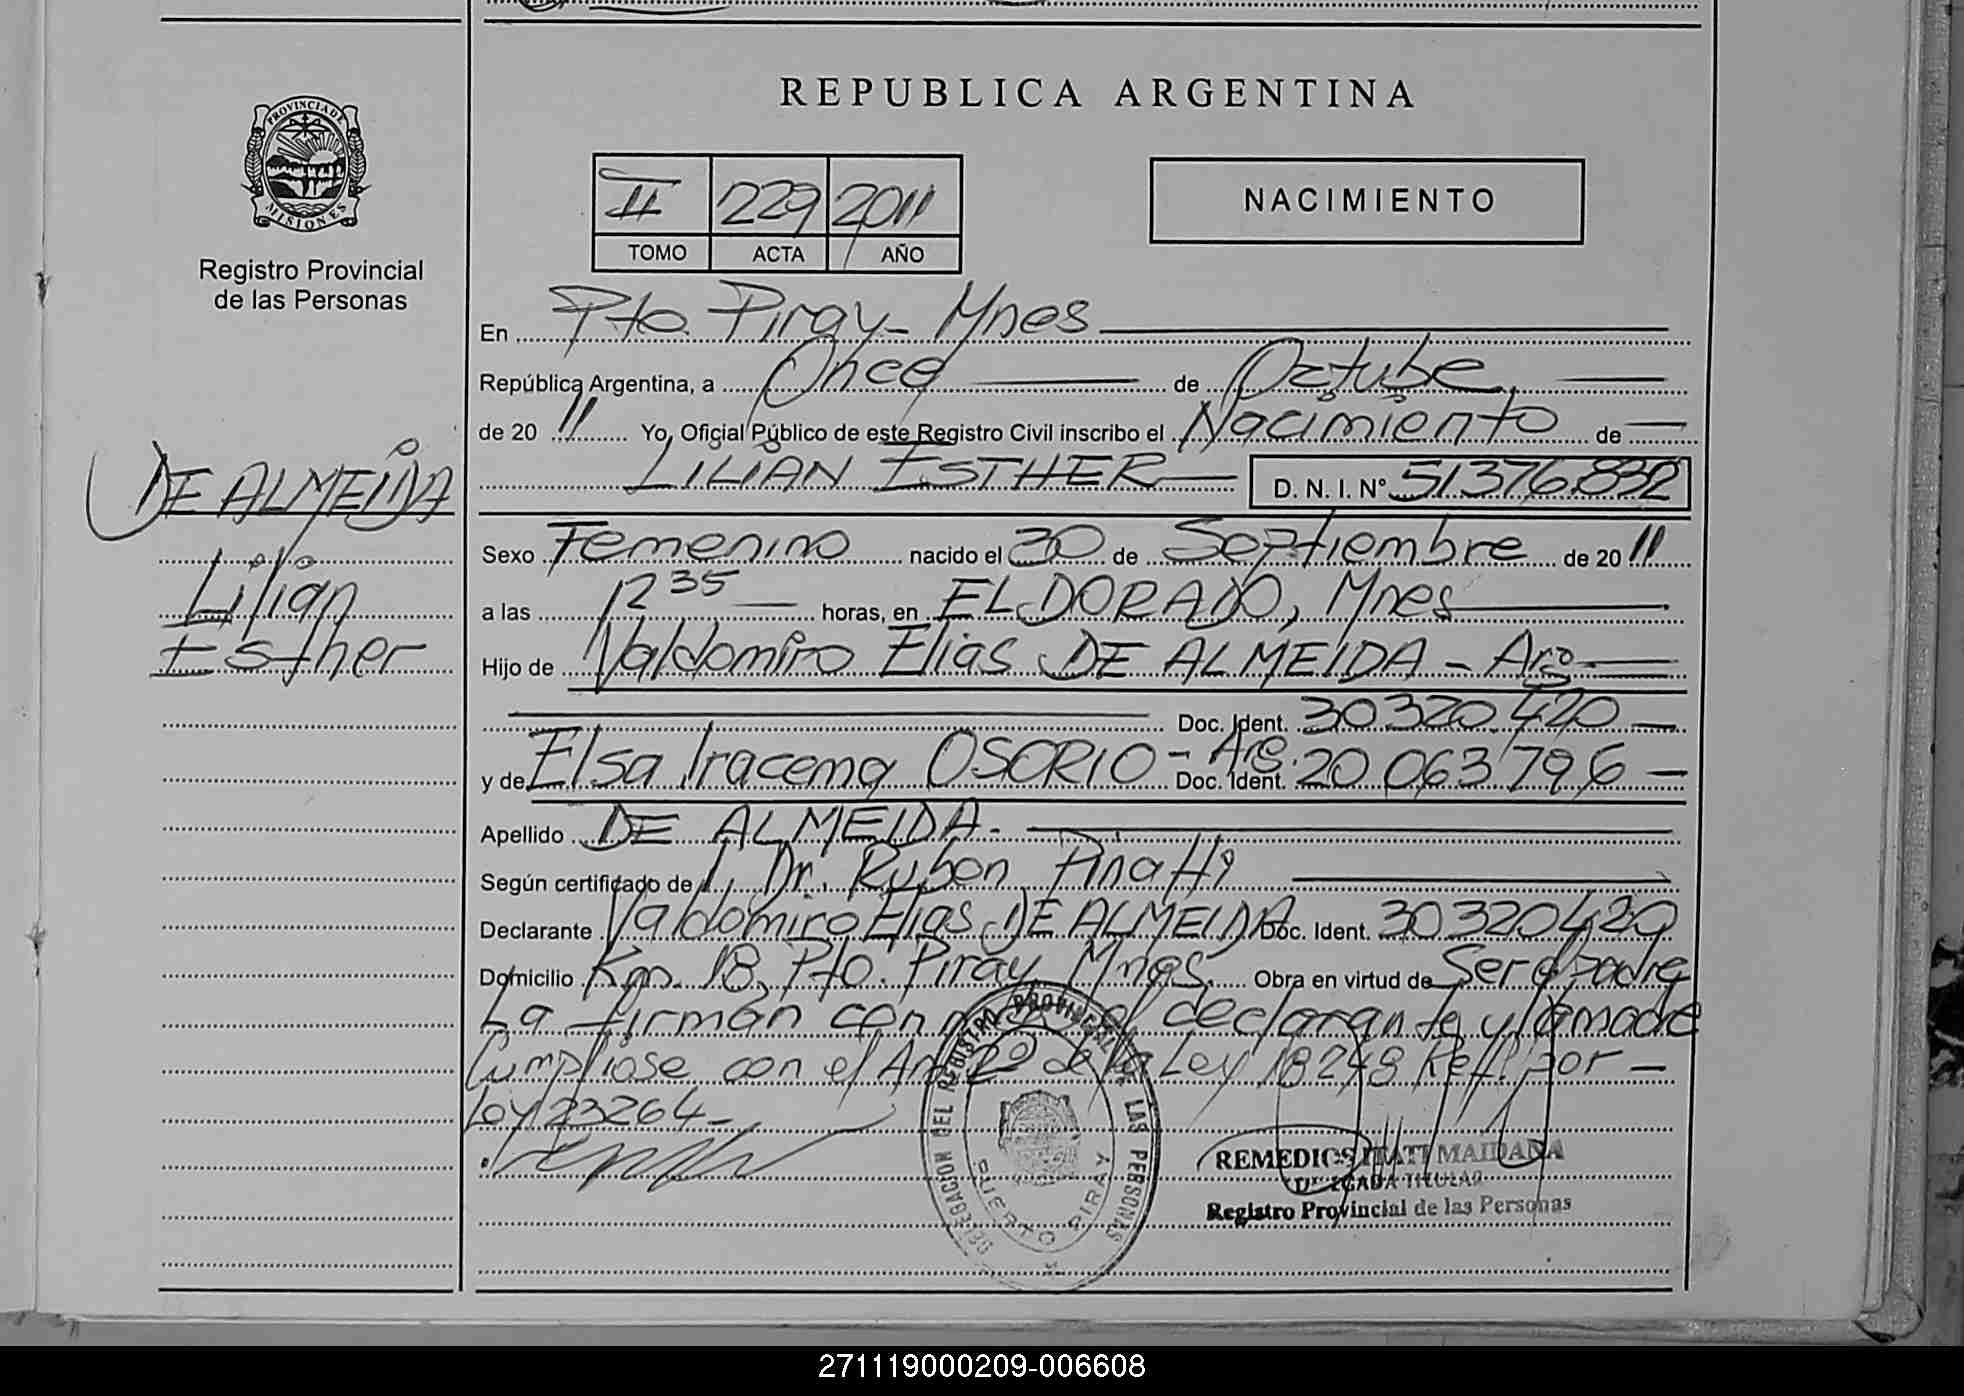 REPUBLICA ARGENTINA
PROVINCIA DE
MISIONES
Registro Provincial
de las Personas
II 229 2011
TOMO ACTA AÑO
NACIMIENTO
En Pto. Piray - Mnes
República Argentina, a Once de Octube
de 20 11 Yo, Oficial Público de este Registro Civil inscribo el Nacimiento de
LILIAN ESTHER D. N. I. Nº 51376.832
DE ALMEIDA
Lilian
Esther
Sexo Femenino nacido el 30 de Septiembre de 20 11
a las 12 35 horas, en ELDORADO, Mnes
Hijo de Valdomiro Elias DE ALMEIDA - Arg
Doc. Ident. 30320.420
y de Elsa Iracema OSORIO - Arg. Doc. Ident. 20 063 796
Apellido DE ALMEIDA.
Según certificado de Dr. Ruben Pinatti
Declarante Valdomiro Elias DE ALMEIDA Doc. Ident. 30320420
Domicilio Km. 18, Pto. Piray Mnes. Obra en virtud de Ser el padre
La firman el declarante y la madre
Cumpliose con el Art 2º de la Ley 18248 por
Ley 23264
DELEGACION DEL REGISTRO PROVINCIAL DE LAS PERSONAS
PUERTO PIRAY
REMEDIOS ITATI MAIDANA
DELEGADA TITULAR
Registro Provincial de las Personas
271119000209-006608